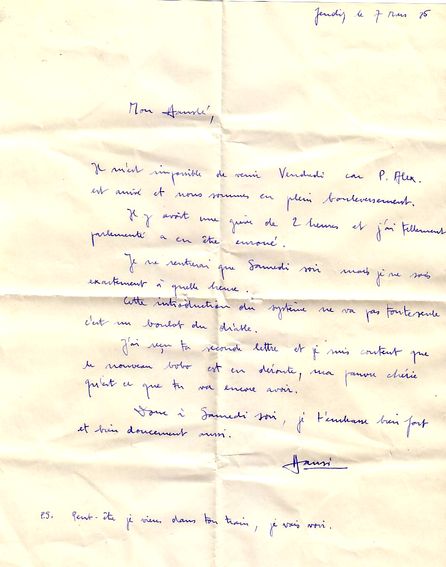 Jeudi, le 7 Mars
Mon
Il m'est impossible de venir Vendredi car P. Alex.
est arrivé et nous sommes en plein bouleversement.
Il y avait une grève de 2 heures et j'ai tellement
parlementé a en être enroué.
Je ne rentrerai que Samedi soir mais je ne sais
exactement à quelle heure.
Cette introduction du système ne va pas toute seule
c'est un boulot du diable.
J'ai reçu ta seconde lettre et je suis content que
le nouveau bobo est en déroute, ma pauvre chérie
qu'est ce que tu va encore avoir.
Donc à Samedi soir, je t'embrasse bien fort
et bien doucement aussi.
Hansi
PS. Peut-être je viens dans ton train, je vais voir.